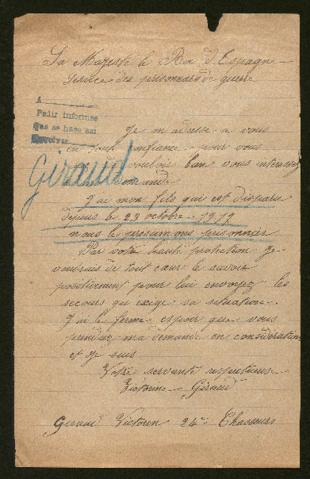 Sa Majesté le Roi d'Espagne
Service des prisonniers de guerre
A
Pedir informes
Que se hace así
Je m adresse a vous
en toute confiance pour vous
bien vous interesser
Giraud
demande
J'ai mon fils qui est disparu
depuis le 23 octobre 1917
nous le presumons prisonnier
Par votre haute protection je
voudrais de tout cœur le savoir
positivement pour lui envoyez les
secours que exige sa situation
J'ai le ferme espoir que vous
prendrez ma demande en consideration
et je suis
Votre servante respectueuse
Victorine Giraud
Giraud Victorin 24e Chasseurs